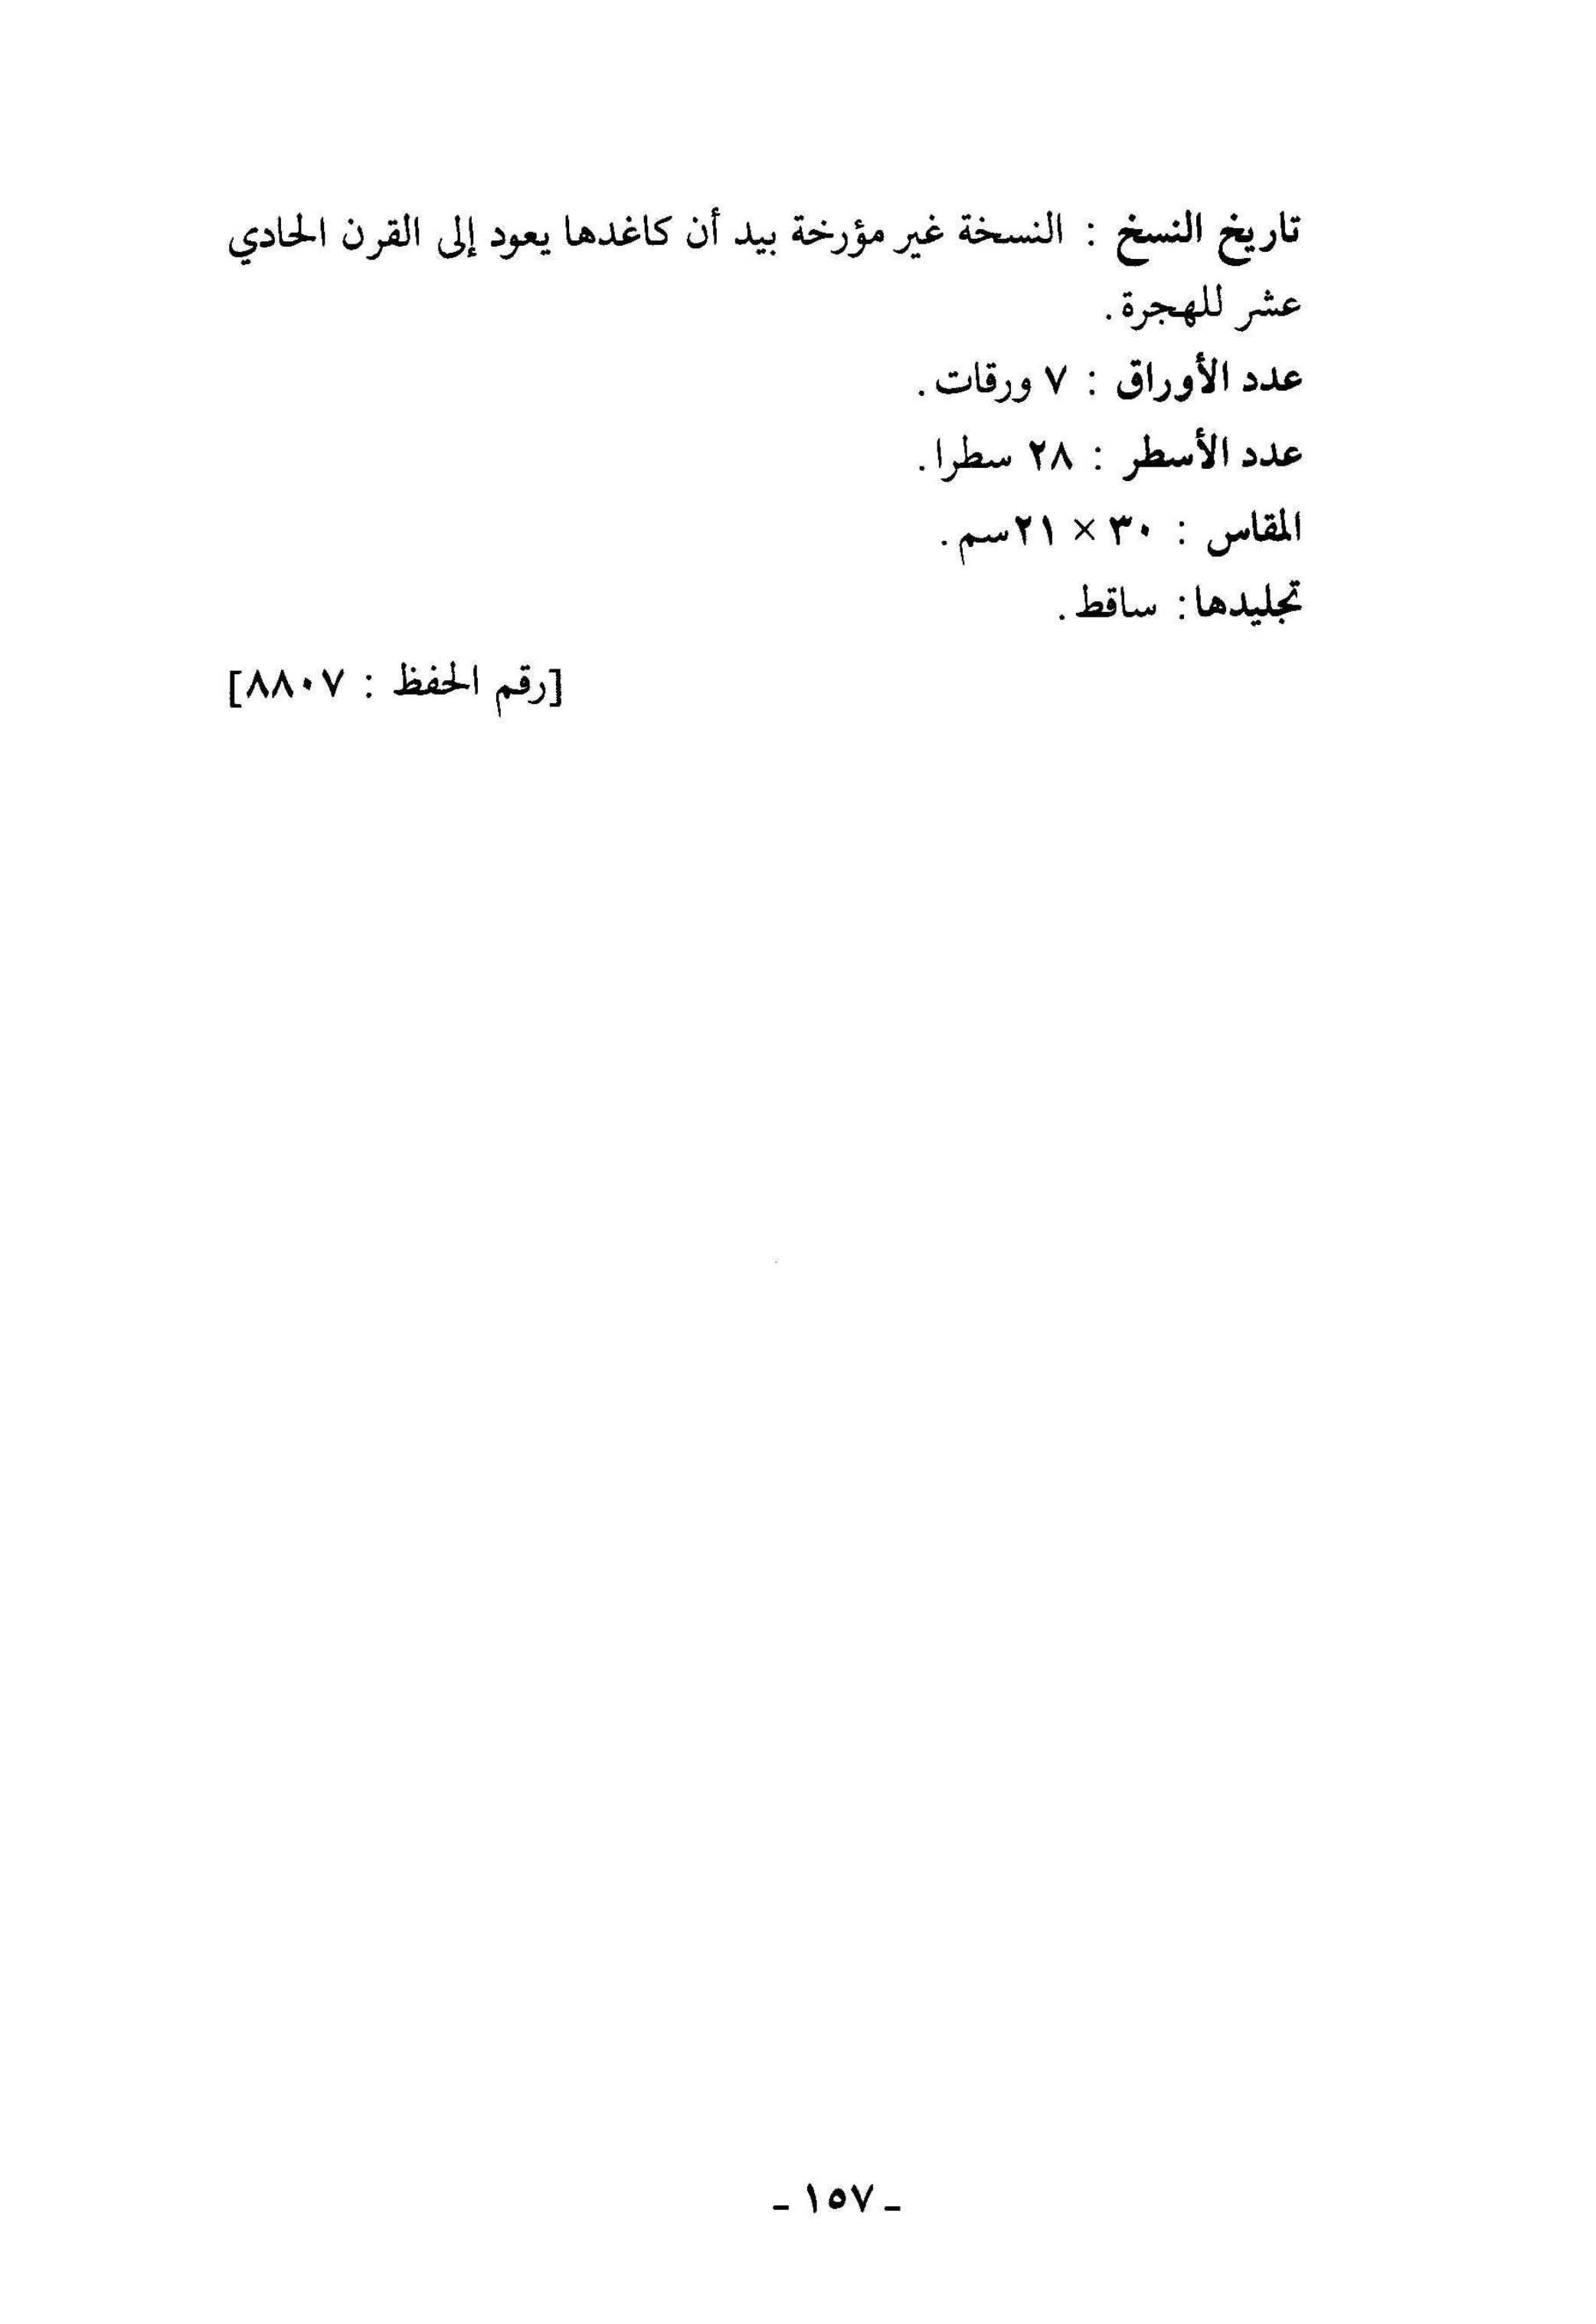 تاريخ النسخ : النسخة غير مؤرخة بيد أن كاغدها يعود إلى القرن الحادي
عشر للهجرة .
عدد الأوراق : ٧ ورقات .
عدد الأسطر : ٢٨ سطرا .
المقاس : ٣٠ × ٢١سم .
تجليدها: ساقط .
[رقم الحفظ : ٨٨٠٧]
ـ ١٥٧ ـ